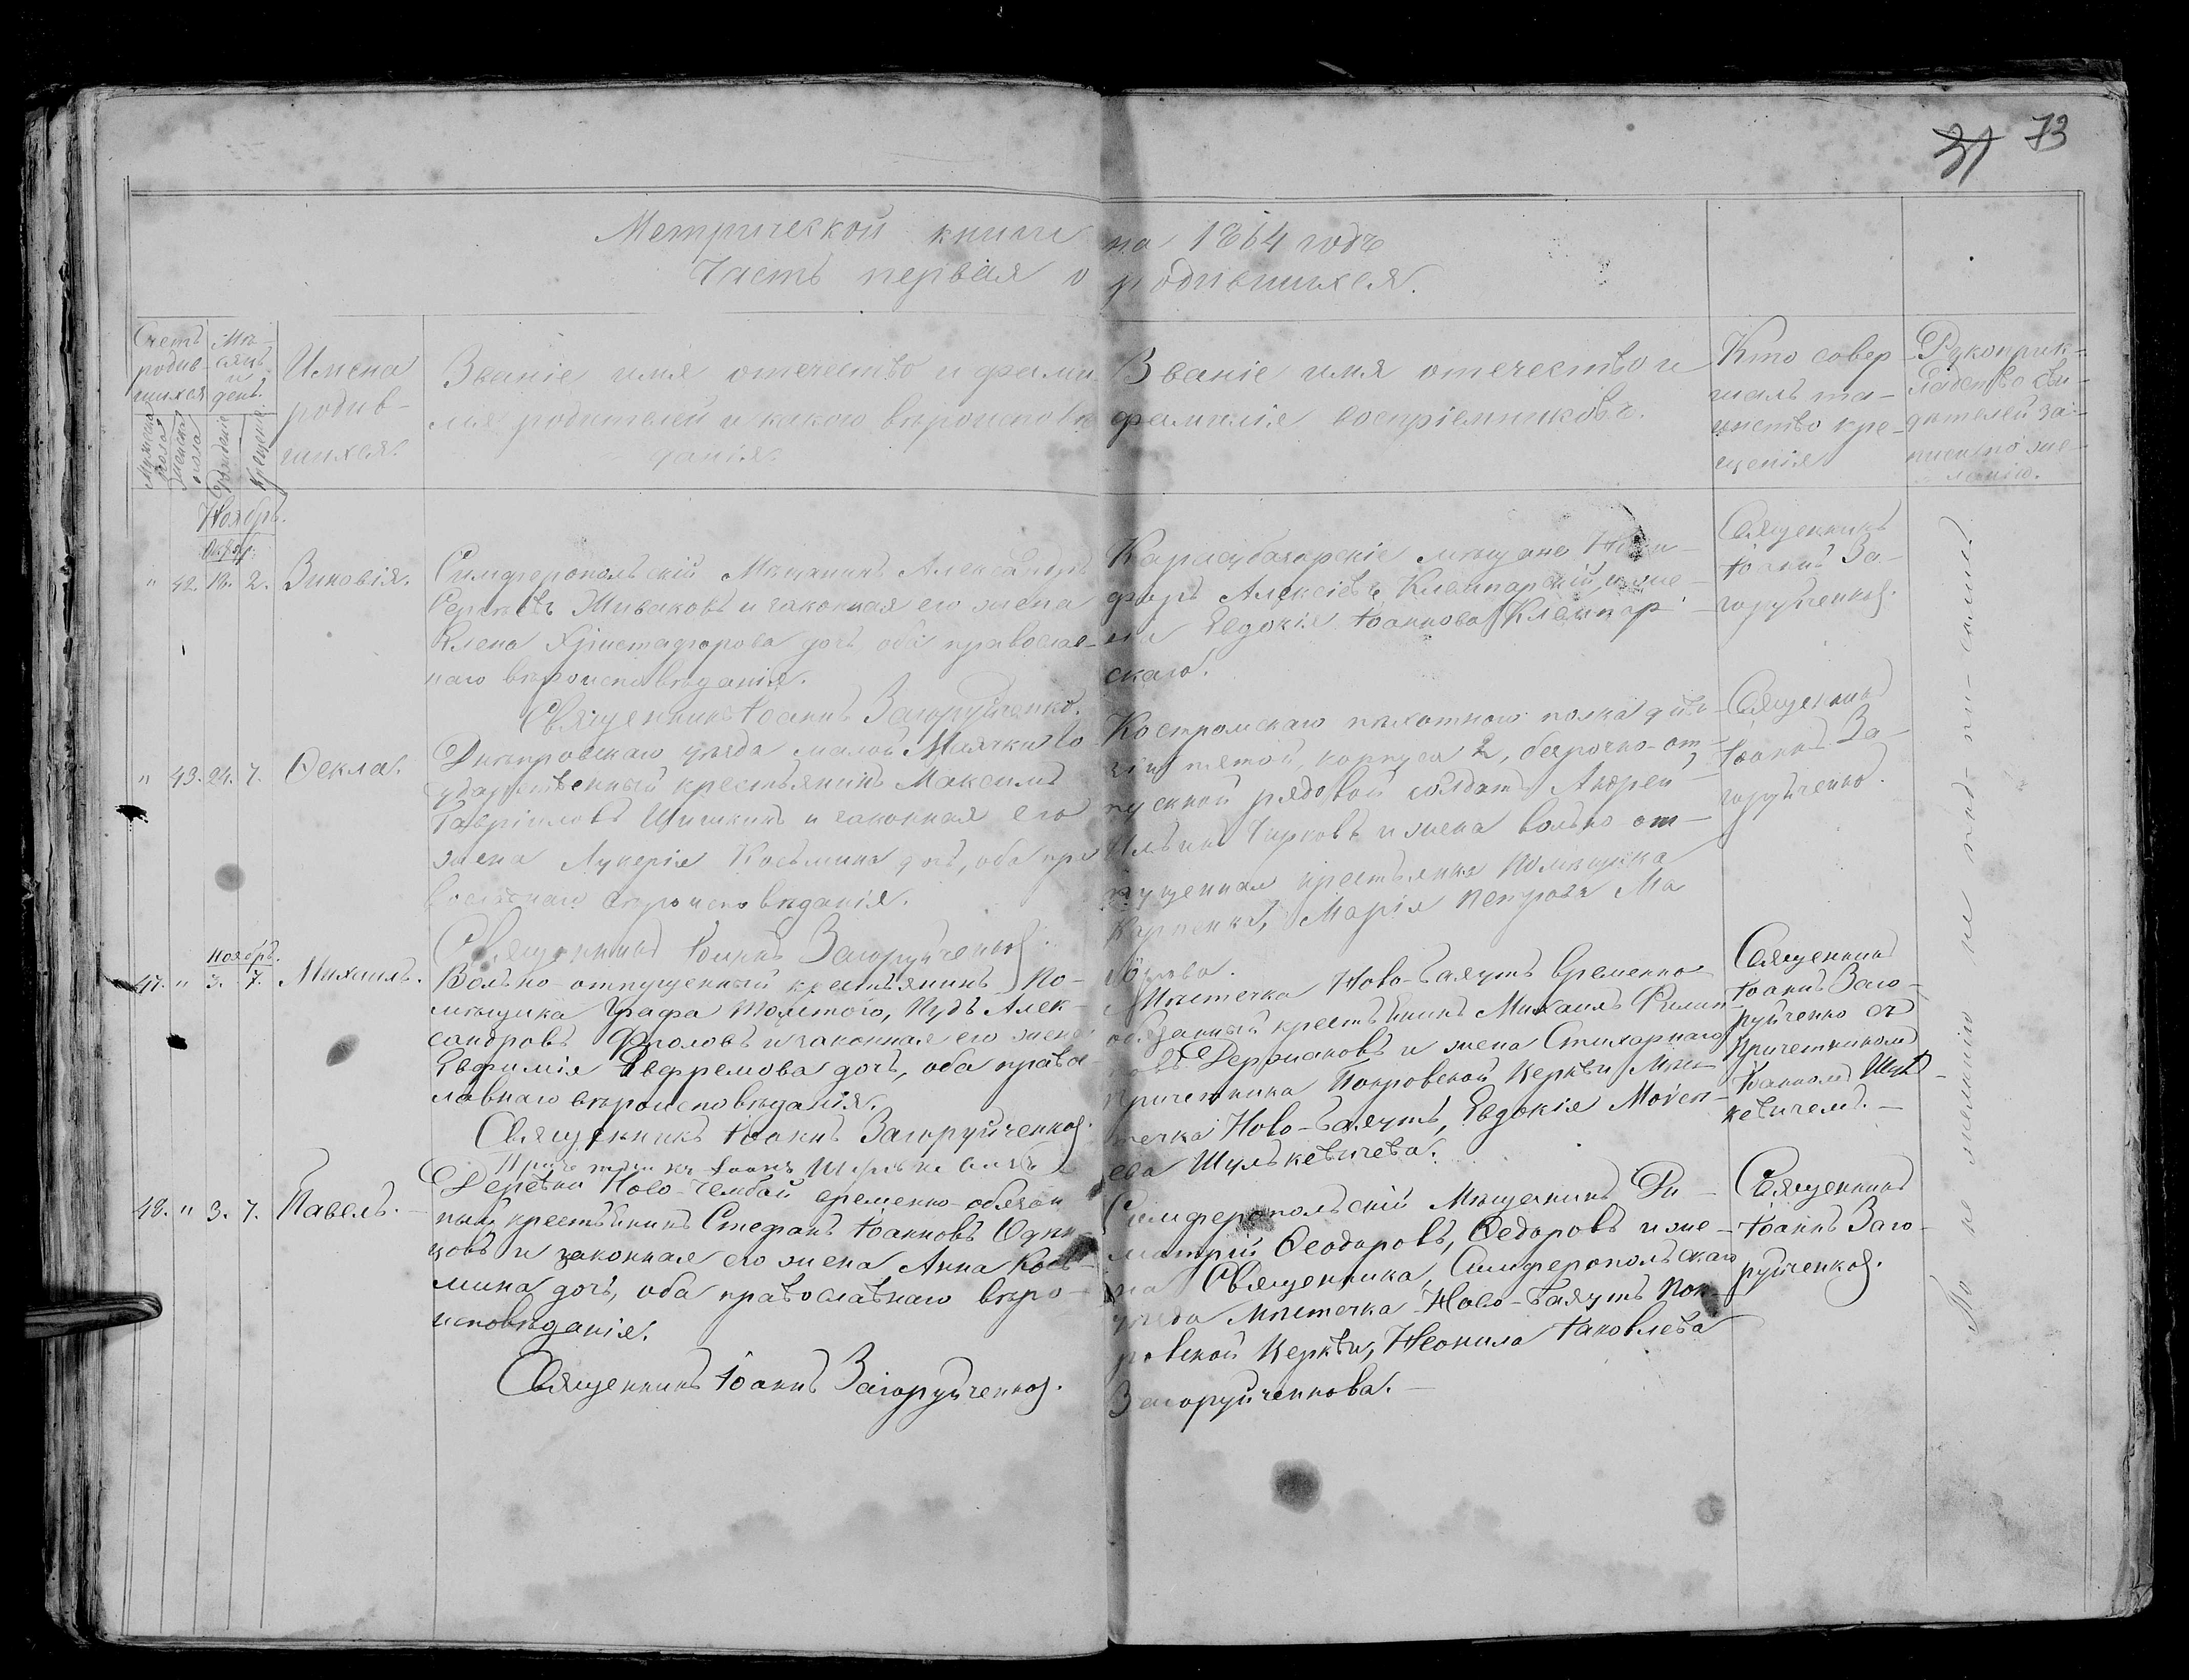 31 73
Метрической книги на 1864 годъ
Часть первая о родившихся.
Счетъ родив-шихся
Мужеска пола
Женска пола
Мѣ-сяцъ и день.
Рожденія
Крещенія
Имена
родив-
шихся.
Званіе имя отечество и фами
лія родителей и какого вѣроисповѣ
данія.
Званіе имя отечество и
фамиліе воспріемниковъ.
Кто совер
шалъ та-
инство кре-
щенія
Рукоприк-
ладство сви-
дѣтелей за-
писи по же-
ланію.
Ноябрь.
Октяб:
" 42. 18. 2. Зиновія.
Симферопольскій Мѣщанинъ Александръ
Сергѣевъ Живаковъ и законная его жена
Елена Христафорова дочь оба православ-
наго вѣроисповѣданія.
Священникъ Іоаннъ Загоруйченко.
Карасубазарскіе мѣщане
форъ Алексѣевъ и же-
на Евдокія Іоаннова
скаго.
Священникъ
Іоаннъ За-
горуйченко.
" 43. 24. 7. Ѳекла.
Днѣпровскаго уѣзда малой Маячки го
ударственный крестьянинъ Максимъ
Гавріиловъ Шишкинъ и законная его
жена Лукерія Косьмина дочь, оба пра
вославнаго вѣроисповѣданія.
Священникъ Іоаннъ Загоруйченко.
Костромскаго пѣхотнаго полка диви-
зіи пятой, корпуса 2, безсрочно-от-
пускной рядовой солдатъ Андрей
Ильинъ Чирковъ и жена вольно-от-
пущенная крестьянка помѣщика
Карпенка, Марія Петрова Ма
Священникъ
Іоаннъ За-
горуйченко.
Ноябрь.
47. " 3. 7. Михаилъ.
Вольно-отпущенный крестьянинъ По-
мѣщика Графа Толстого, Пудъ Алек-
сандровъ Фроловъ и законная его жена
Евфимія Евфремова дочь, оба правос-
лавнаго вѣроисповѣданія.
Священникъ Іоаннъ Загоруйченко.
Причетникъ Іоаннъ Шулькевичъ
Мѣстечка Ново-Баяутъ временно
обязанный крестьянинъ Михаилъ Филип
овъ Держаковъ и жена Стихарнаго
причетника Покровской Церкви Мѣс-
течка Ново-Баяутъ, Евдокія Моѵсе-
ева Шулькевичева.
Священникъ
Іоаннъ Заго-
руйченко съ
Причетникомъ
Іоанномъ Шуль-
кевичемъ.
48. " 3. 7. Павелъ.
Деревни Ново-Чембай временно-обязан
ный крестьянинъ Стефанъ Іоанновъ Один
цовъ и законная его жена Анна Кось-
мина дочь, оба православнаго вѣро-
исповѣданія.
Священникъ Іоаннъ Загоруйченко.
Симферопольскій Мѣщанинъ Ди-
митрій Ѳеодоровъ, Ѳедоровъ и же-
на Священника, Симферопольскаго
уѣзда Мѣстечка Ново-Баяутъ Пок-
ровской Церкви, Неонила Іаковлева
Загоруйченкова.
Священникъ
Іоаннъ Заго-
руйченко.
По не имѣнію не под-пи-сали.